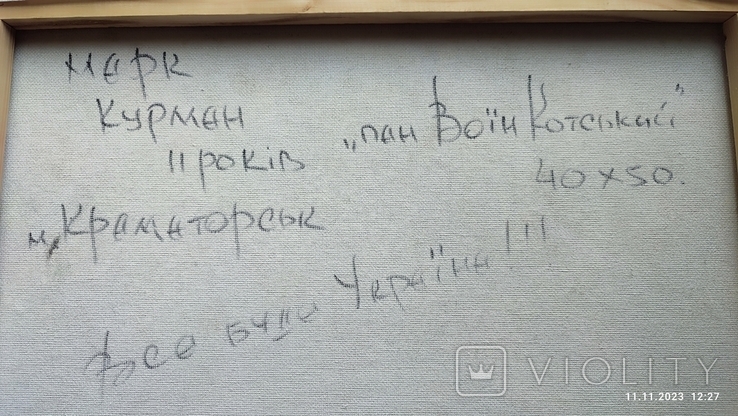 Марк
Курман
11 років
м. Краматорськ
„пан Воїн Котський”
40х50.
Все буди Україна!!!
VIOLITY
11.11.2023 12:27